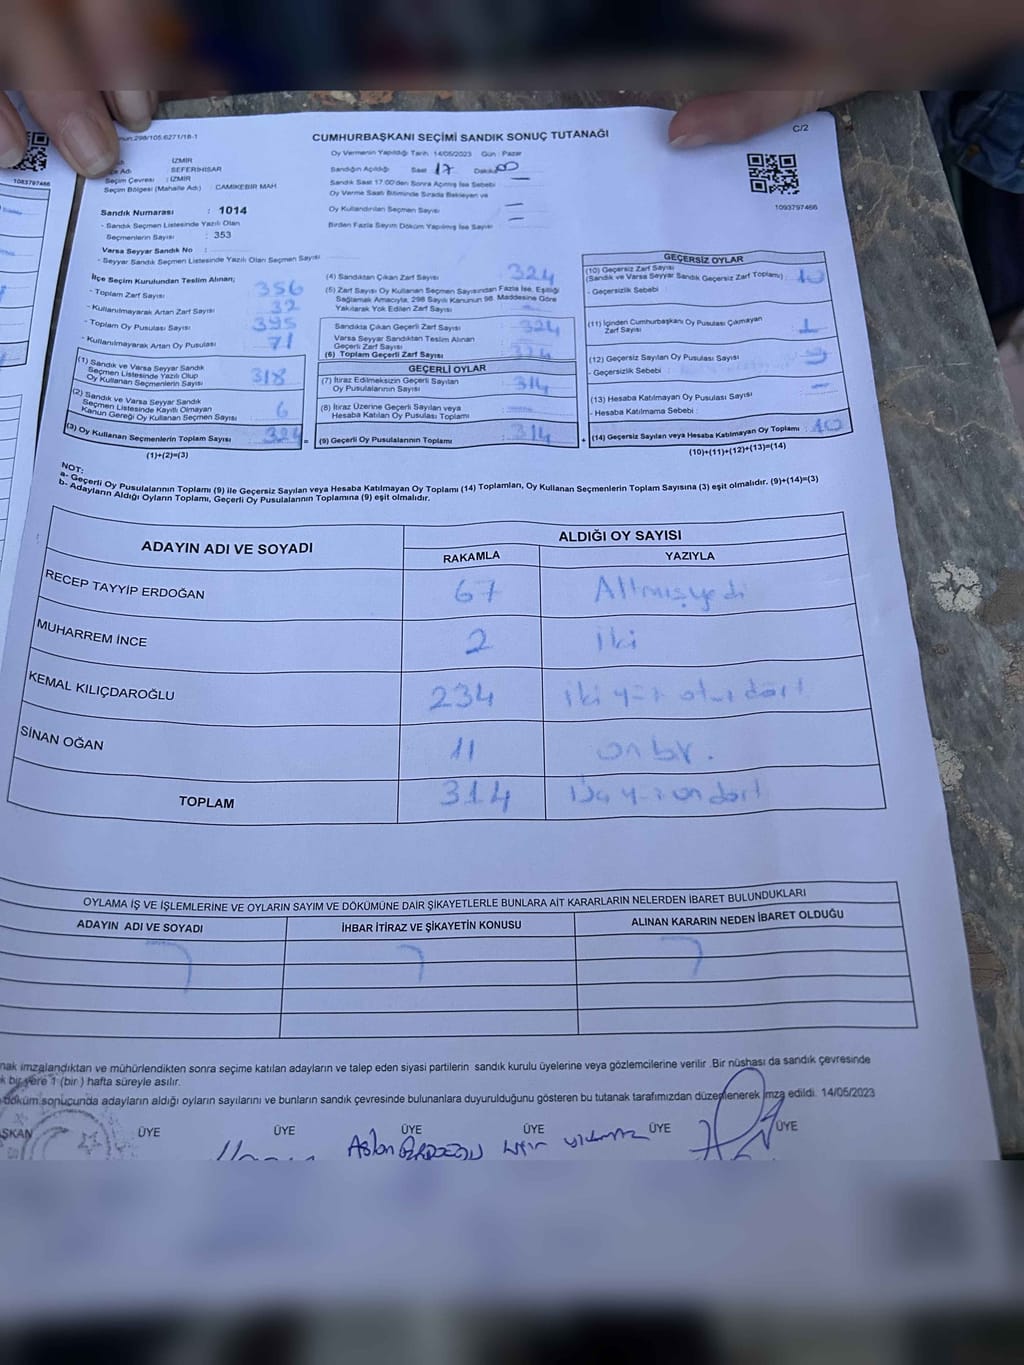 CUMHURBAŞKANI SEÇİMİ SANDIK SONUÇ TUTANAĞI
C/2
1083797466
1093797466
İZMİR
SEFERİHİSAR
Seçim Çevresi : İZMİR
Seçim Bölgesi (Mahalle Adı) : CAMİKEBİR MAH.
Oy Vermenin Yapıldığı Tarih: 14/05/2023 Gün : Pazar
Sandığın Açıldığı Saat 17 Dakika 00
Sandık Saat 17:00'den Sonra Açılmış İse Sebebi
Oy Verme Saati Bitiminde Sırada Bekleyen ve
Oy Kullandırılan Seçmen Sayısı
Birden Fazla Sayım Döküm Yapılmış İse Sayısı
Sandık Numarası : 1014
- Sandık Seçmen Listesinde Yazılı Olan
Seçmenlerin Sayısı : 353
Varsa Seyyar Sandık No :
- Seyyar Sandık Seçmen Listesinde Yazılı Olan Seçmen Sayısı
İlçe Seçim Kurulundan Teslim Alınan;
- Toplam Zarf Sayısı 356
- Kullanılmayarak Artan Zarf Sayısı 32
- Toplam Oy Pusulası Sayısı 395
- Kullanılmayarak Artan Oy Pusulası 71
(1) Sandık ve Varsa Seyyar Sandık
Seçmen Listesinde Yazılı Olup
Oy Kullanan Seçmenlerin Sayısı 318
(2) Sandık ve Varsa Seyyar Sandık
Seçmen Listesinde Kayıtlı Olmayan
Kanun Gereği Oy Kullanan Seçmen Sayısı 6
(3) Oy Kullanan Seçmenlerin Toplam Sayısı 324
(1)+(2)=(3)
(4) Sandıktan Çıkan Zarf Sayısı 324
(5) Zarf Sayısı Oy Kullanan Seçmen Sayısından Fazla İse, Eşitliği
Sağlamak Amacıyla, 298 Sayılı Kanunun 98. Maddesine Göre
Yakılarak Yok Edilen Zarf Sayısı
Sandıkta Çıkan Geçerli Zarf Sayısı 324
Varsa Seyyar Sandıktan Teslim Alınan
Geçerli Zarf Sayısı
(6) Toplam Geçerli Zarf Sayısı 324
GEÇERLİ OYLAR
(7) İtiraz Edilmeksizin Geçerli Sayılan
Oy Pusulalarının Sayısı 314
(8) İtiraz Üzerine Geçerli Sayılan veya
Hesaba Katılan Oy Pusulası Toplamı
= (9) Geçerli Oy Pusulalarının Toplamı 314 +
GEÇERSİZ OYLAR
(10) Geçersiz Zarf Sayısı
(Sandık ve Varsa Seyyar Sandık Geçersiz Zarf Toplamı) :
- Geçersizlik Sebebi :
(11) İçinden Cumhurbaşkanı Oy Pusulası Çıkmayan
Zarf Sayısı 1
(12) Geçersiz Sayılan Oy Pusulası Sayısı
- Geçersizlik Sebebi :
(13) Hesaba Katılmayan Oy Pusulası Sayısı
- Hesaba Katılmama Sebebi :
(14) Geçersiz Sayılan veya Hesaba Katılmayan Oy Toplamı : 10
(10)+(11)+(12)+(13)=(14)
NOT:
a- Geçerli Oy Pusulalarının Toplamı (9) ile Geçersiz Sayılan veya Hesaba Katılmayan Oy Toplamı (14) Toplamları, Oy Kullanan Seçmenlerin Toplam Sayısına (3) eşit olmalıdır. (9)+(14)=(3)
b- Adayların Aldığı Oyların Toplamı, Geçerli Oy Pusulalarının Toplamına (9) eşit olmalıdır.
ADAYIN ADI VE SOYADI
ALDIĞI OY SAYISI
RAKAMLA YAZIYLA
RECEP TAYYİP ERDOĞAN 67 Altmışyedi
MUHARREM İNCE 2 iki
KEMAL KILIÇDAROĞLU 234 iki yüz otuz dört
SİNAN OĞAN 11 on bir.
TOPLAM 314 üç yüz on dört
OYLAMA İŞ VE İŞLEMLERİNE VE OYLARIN SAYIM VE DÖKÜMÜNE DAİR ŞİKAYETLERLE BUNLARA AİT KARARLARIN NELERDEN İBARET BULUNDUKLARI
ADAYIN ADI VE SOYADI İHBAR İTİRAZ VE ŞİKAYETİN KONUSU ALINAN KARARIN NEDEN İBARET OLDUĞU
nak imzalandıktan ve mühürlendikten sonra seçime katılan adayların ve talep eden siyasi partilerin sandık kurulu üyelerine veya gözlemcilerine verilir .Bir nüshası da sandık çevresinde
k bir yere 1 (bir ) hafta süreyle asılır.
döküm sonuçunda adayların aldığı oyların sayılarını ve bunların sandık çevresinde bulunanlara duyurulduğunu gösteren bu tutanak tarafımızdan düzenlenerek imza edildi. 14/05/2023
ŞKAN ÜYE ÜYE ÜYE ÜYE ÜYE ÜYE
Aslan